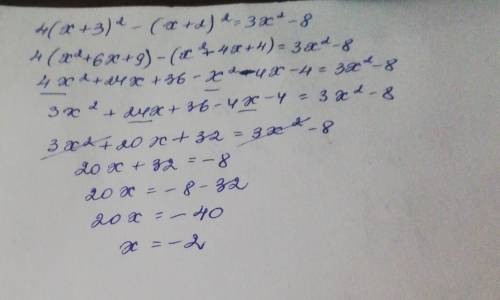 4(x+3)² - (x+2)² = 3x² - 8
4(x²+6x+9) - (x²+4x+4) = 3x² - 8
4x² + 24x + 36 - x² - 4x - 4 = 3x² - 8
3x² + 24x + 36 - 4x - 4 = 3x² - 8
3x² + 20x + 32 = 3x² - 8
20x + 32 = -8
20x = -8 - 32
20x = -40
x = -2